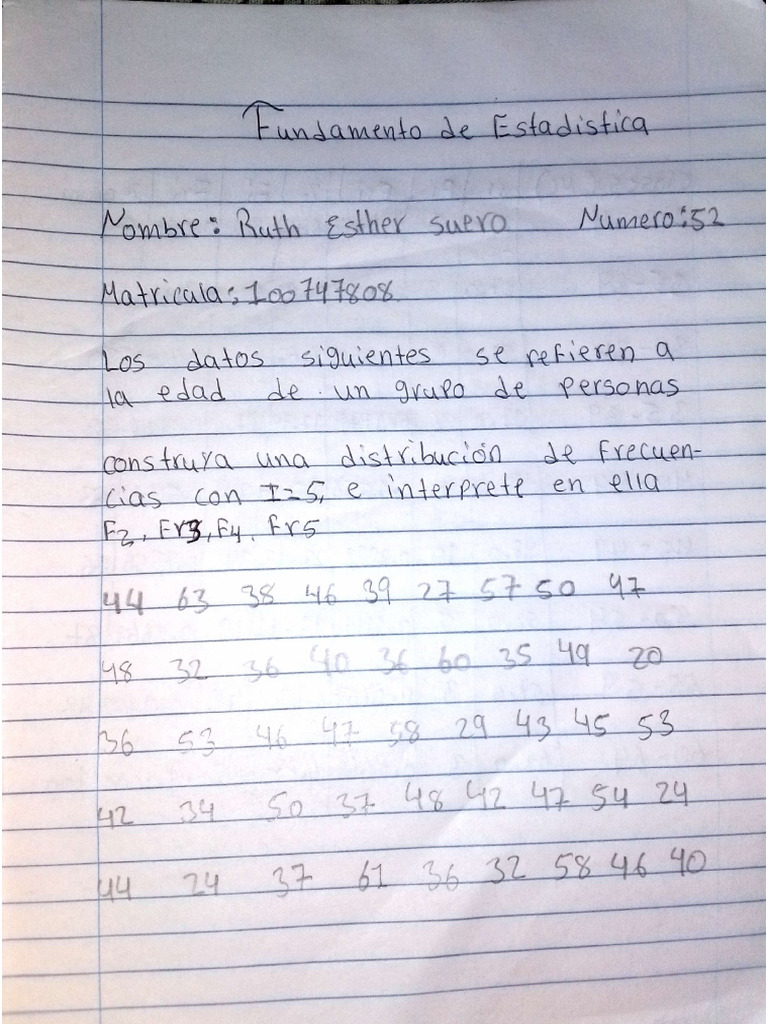 Fundamento de Estadistica
Nombre: Ruth Esther suero Numero:52
Matricula:100747808
Los datos siguientes se refieren a
la edad de un grupo de personas
construya una distribución de Frecuen-
cias con I=5, e interprete en ella
F2, Fr3, F4. Fr5
44 63 38 46 39 27 57 50 47
48 32 36 40 36 60 35 49 20
36 53 46 47 58 29 43 45 53
42 34 50 37 48 42 47 54 24
44 24 37 61 36 32 58 46 40